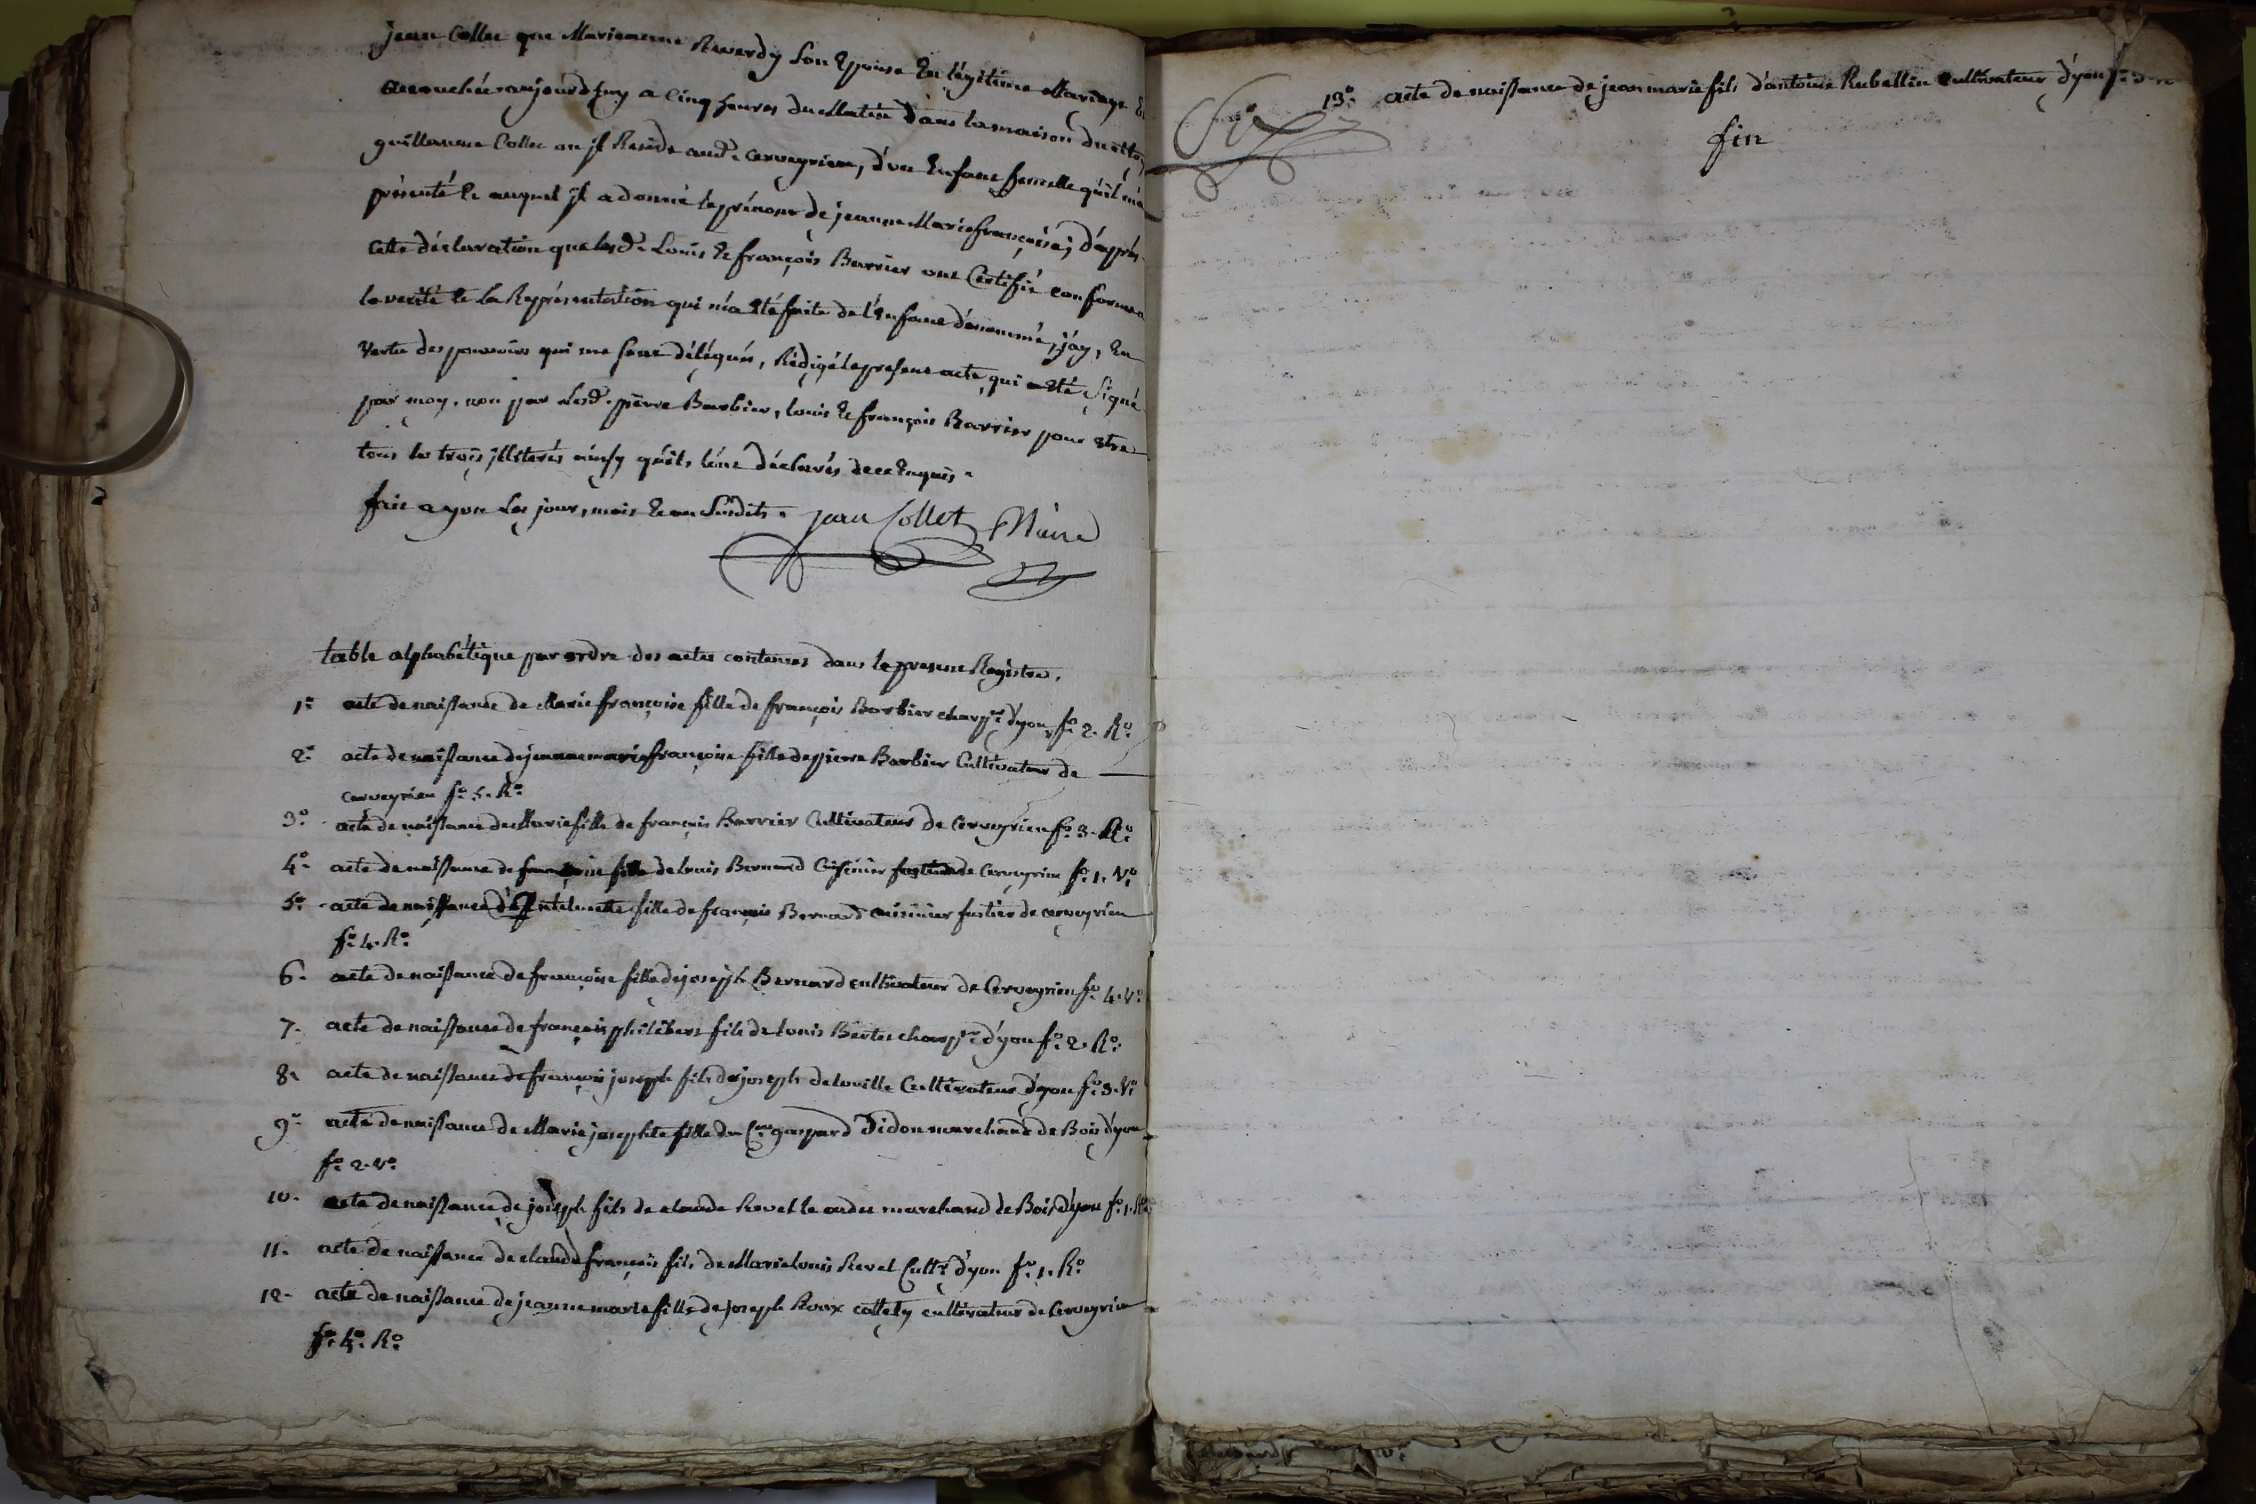 jean Collet que Marieanne Reverdy Son Epouse En légitime Mariage Est
accouchée aujourd'huy a Cinq heures du Matin dans la maison du citoy
guillaume Collet ou jl Reside aud.t Cerveyrieu, d'un Enfant femelle qu'il m'a
présenté Et auquel jl a donné le prénom de jeanne Marie françoise; d'après
Cette déclaration que lesd.s Louis Et françois Barrier ont Certifié conforme a
la verité Et la Représentation qui m'a Eté faite de l'Enfant dénommé, j'ay, En
Vertu des pouvoirs qui me sont délégués, Rédigé le present acte, qui a Eté Signé
par moy, non par Lesd.s pierre Barbier, louis Et françois Barrier pour Etre
tous les trois jlliterés ainsy qu'ils l'ont déclarés de ce Enquis.
fait a yon Les jour, mois Et an Susdits. jean Collet Maire
table alphabétique par ordre des actes contenus dans le present Registre.
1.o acte de naissance de Marie françoise fille de françois Barbier charp.er d'yon f.o 2. R.o
2.o acte de naissance de jeanne marie françoise fille de pierre Barbier Cultivateur de
Cerveyrieu f.o 5. R.o
3.o acte de naissance de Marie fille de françois Barrier Cultivateur de Cerveyrieu f.o 3. R.o
4.o acte de naissance de françoise fille de louis Bernard Cuisinier de Cerveyrieu f.o 1. V.o
5.o acte de naissance d'Antelmette fille de françois Bernard cuisinier fustier de cerveyrieu
f.o 4. R.o
6. acte de naissance de françoise fille de joseph Bernard cultivateur de Cerveyrieu f.o 4. V.o
7. acte de naissance de françois philibert fils de louis Bertet charp.er d'yon f.o 2. R.o
8. acte de naissance de françois joseph fils de joseph deloville Cultivateur d'yon f.o 3. V.o
9.o acte de naissance de Marie josephte fille du C.en gaspard Didon marchand de Bois d'yon
f.o 2. V.o
10. acte de naissance de joseph fils de claude Revel le cadet marchand de Bois d'yon f.o 1. R.o
11. acte de naissance de claude françois fils de Marie louis Revel Cult.r d'yon f.o 1. R.o
12. acte de naissance de jeanne marie fille de joseph Roux collety cultivateur de Cerveyrieu
f.o 4.o R.o
13.o acte de naissance de jean marie fils d'antoine Rubellin Cultivateur d'yon f.o 3.
fin